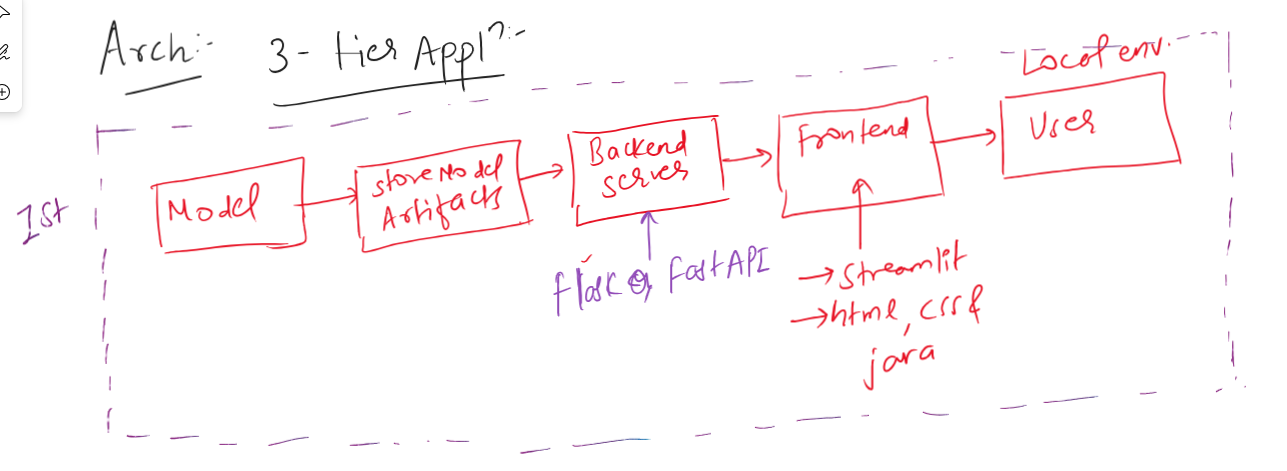 Arch:- 3-tier Appln:-
Local env.
1st
Model
Store Model
Artifacts
Backend
server
Frontend
User
flask or FastAPI
→ Streamlit
→ html, css &
java